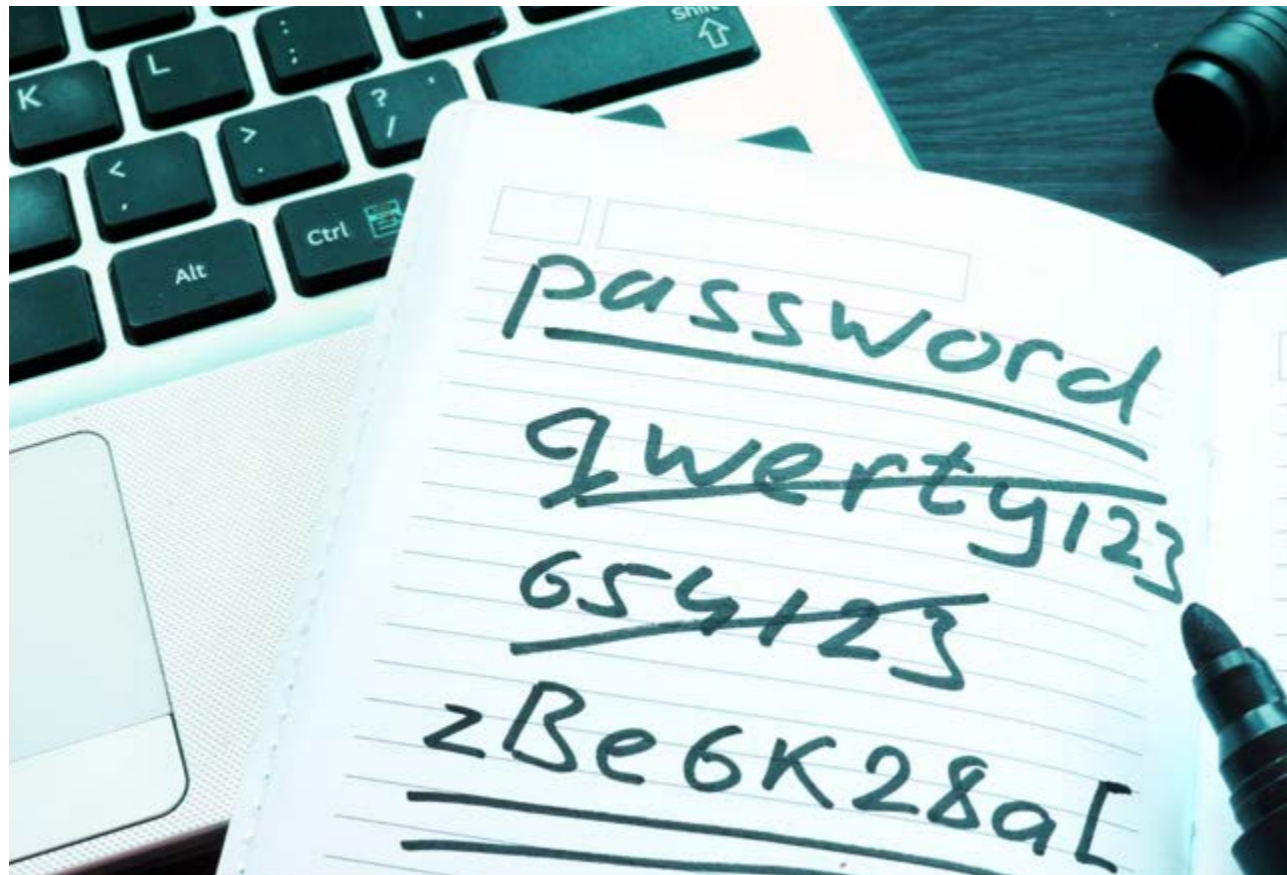 Shift
K L : ;
< , > . ? / " '
Alt Ctrl
password
qwerty123
654123
zBe6K28a[